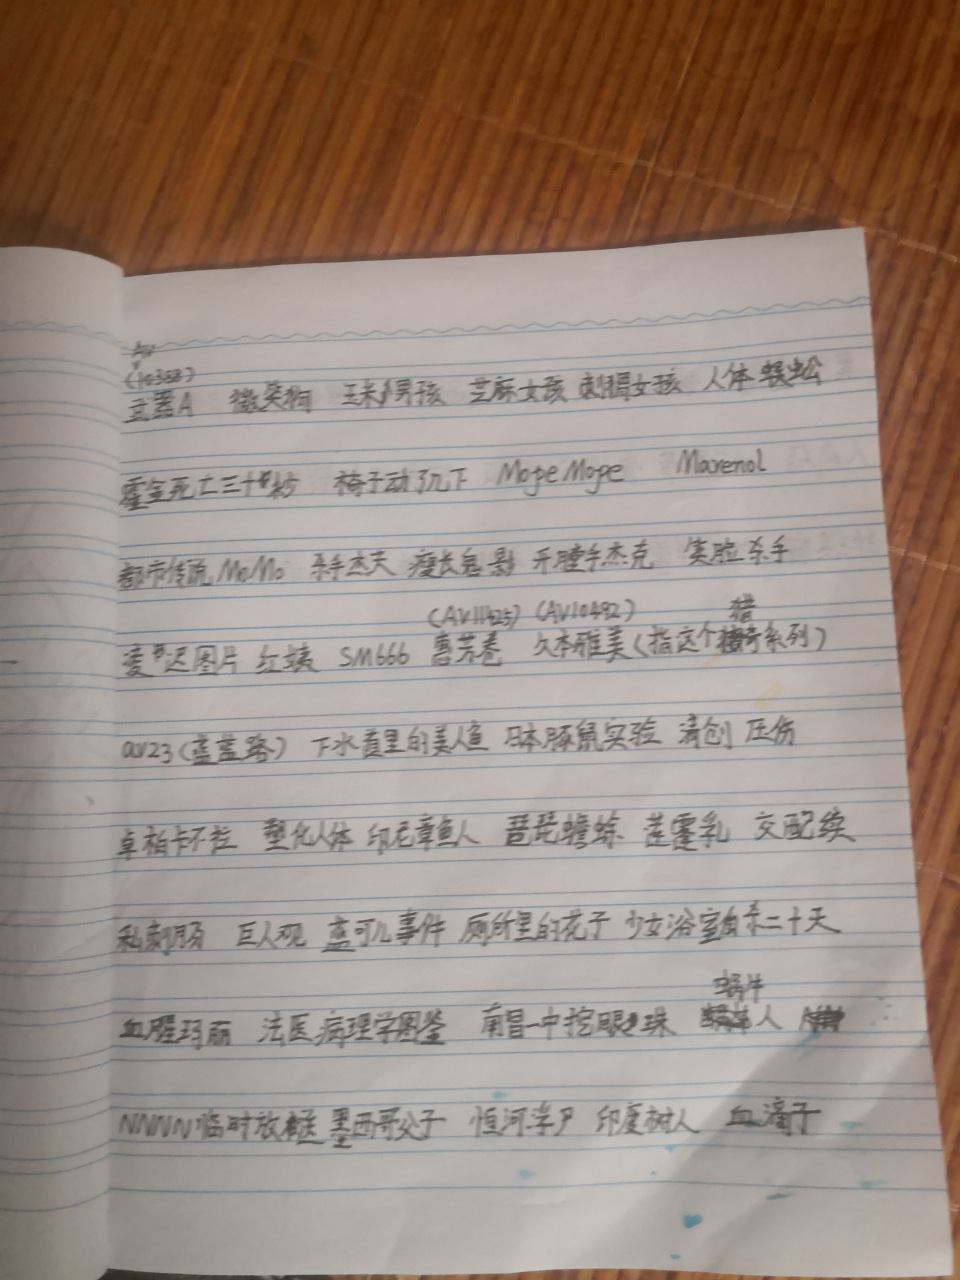 (10388)
武器A 微笑狗 玉米男孩 芝麻女孩 刺猬女孩 人体蜈蚣
霍金死亡三十秒 椅子动了几下 Mope Mope Marenol
都市传说 MoMo 杀手杰夫 瘦长鬼影 开膛手杰克 笑脸杀手
(AV11425) (AV10492) 猎
凌迟图片 红姨 SM666 惠芳卷 久本雅美(指这个奇系列)
av23(蓝蓝路) 下水道里的美人鱼 日本豚鼠实验 清创 压伤
卓柏卡不拉 塑化人体 印尼章鱼人 琵琶蟾蜍 莲蓬乳 交配续
私刑肠 巨人观 蓝可儿事件 厕所里的花子 少女浴室自杀二十天
蜗牛
血腥玛丽 法医病理学图鉴 南昌一中挖眼珠 人
NNNN临时放送 墨西哥公子 恒河浮尸 印度树人 血滴子